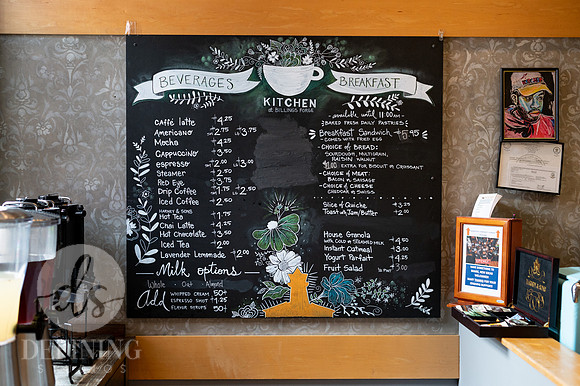 BEVERAGES
BREAKFAST
KITCHEN
at BILLINGS FORGE
Caffé latte 4.25
Americano 2.75 3.75
Mocha 4.25
Cappuccino 3.50
espresso 2.50
Steamer 2.50
Red Eye 3.75
Drip Coffee 2.50
Iced Coffee 2.50
HARNEY & SONS
Hot Tea 1.75
Chai Latte 4.25
Hot Chocolate 3.50
Iced Tea 2.00
Lavender Lemonade 2.00
Milk options
Whole Oat Almond
Add
WHIPPED CREAM 50¢
ESPRESSO SHOT 1.25
FLAVOR SYRUPS 50¢
available until 11:00am
*BAKED FRESH DAILY PASTRIES
Breakfast Sandwich 5.95
- COMES WITH FRIED EGG
- CHOICE OF BREAD:
SOURDOUGH, MULTIGRAIN,
RAISIN WALNUT
$1.00 EXTRA FOR BISCUIT OR CROISSANT
- CHOICE OF MEAT:
BACON OR SAUSAGE
- CHOICE OF CHEESE
CHEDDAR OR SWISS
Slice of Quiche 3.25
Toast w/ Jam/Butter 2.00
House Granola
WITH COLD OR STEAMED MILK 4.50
Instant Oatmeal 3.00
Yogurt Parfait 4.25
Fruit Salad 3.00
DEFINING
STUDIOS